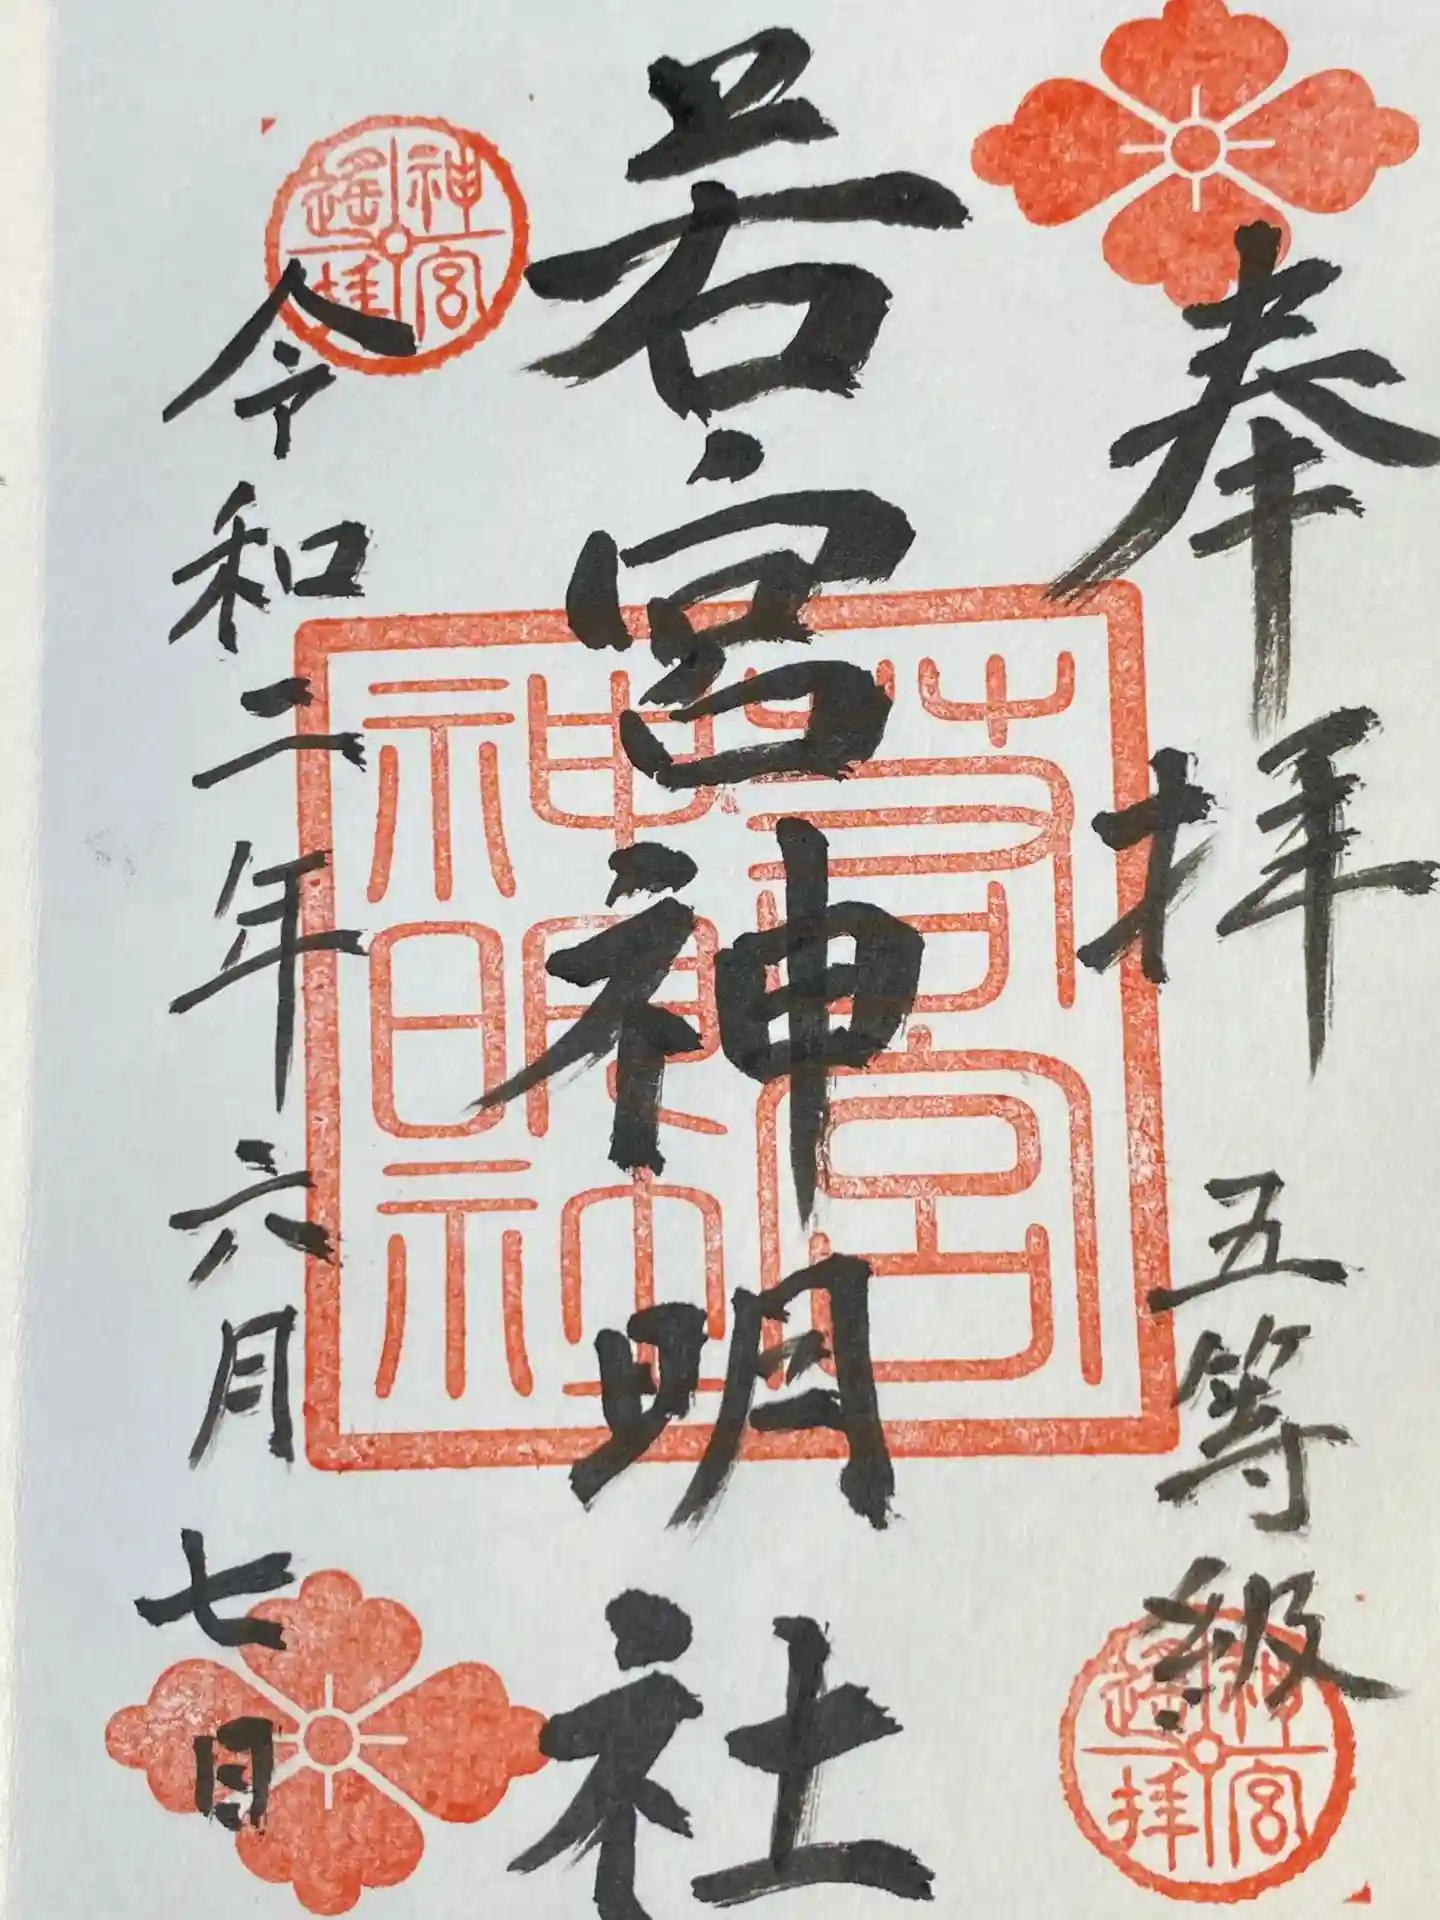 奉拝 五等級
若宮神明社
若宮神明社
令和二年六月七日
神宮遥拝
神宮遥拝